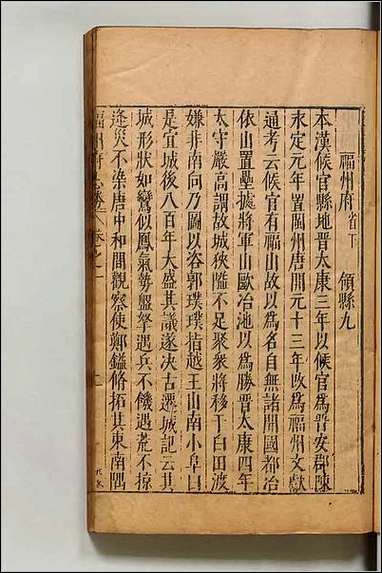 福州府 省下 領縣九
本漢候官縣地晉太康三年以候官為晉安郡陳
永定元年置閩州唐開元十三年改為福州文獻
通考云候官有福山故以為名自無諸開國都冶
依山置壘據將軍山歐冶池以為勝晉太康四年
太守嚴高謂故城狹隘不足聚衆將移于白田渡
嫌非南向乃圖以咨郭璞璞指越王山南小阜曰
是宜城後八百年大盛其議遂决古遷城記云其
城形狀如鸞似鳳氣勢盤拏遇兵不饑遇荒不掠
逢災不染唐中和間觀察使鄭鎰脩拓其東南隅
福州府志勝 卷之一